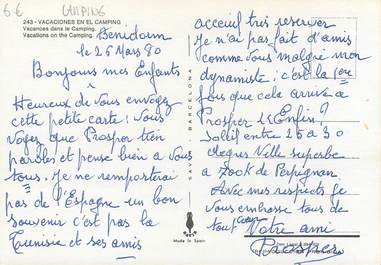 6€
CAMPING
243 - VACACIONES EN EL CAMPING
Vacances dans le Camping.
Vacations on the Camping.
Benidorm
le 25 Mars 80
Bonjours mes Enfants
Heureux de vous envoyez
cette petite carte! Vous
Voyez que Prosper tien
paroles et pense bien a vous
tous. Je ne remporterai
pas de l'Espagne un bon
souvenir c'est pas la
Tunisie et ses amis
BARCELONA
Made in Spain
acceuil tres reserver
Je n'ai pas fait d'amis
comme vous malgré mon
dynamiste; c'est la 1ere
fois que cela arrive a
Prosper! Enfin!
Soleil entre 25 a 30
degres Ville superbe
a 700K de Perpignan
Avec mes respects je
Vous embrasse tous de
tout coeur Votre ami
Prosper